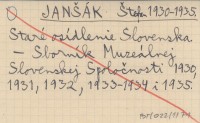 JANŠÁK Štefan 1930-1935.
Staré osídlenie Slovenska
– Sborník Muzeálnej
Slovenskej Spoločnosti 1930,
1931, 1932, 1933-1934 i 1935.